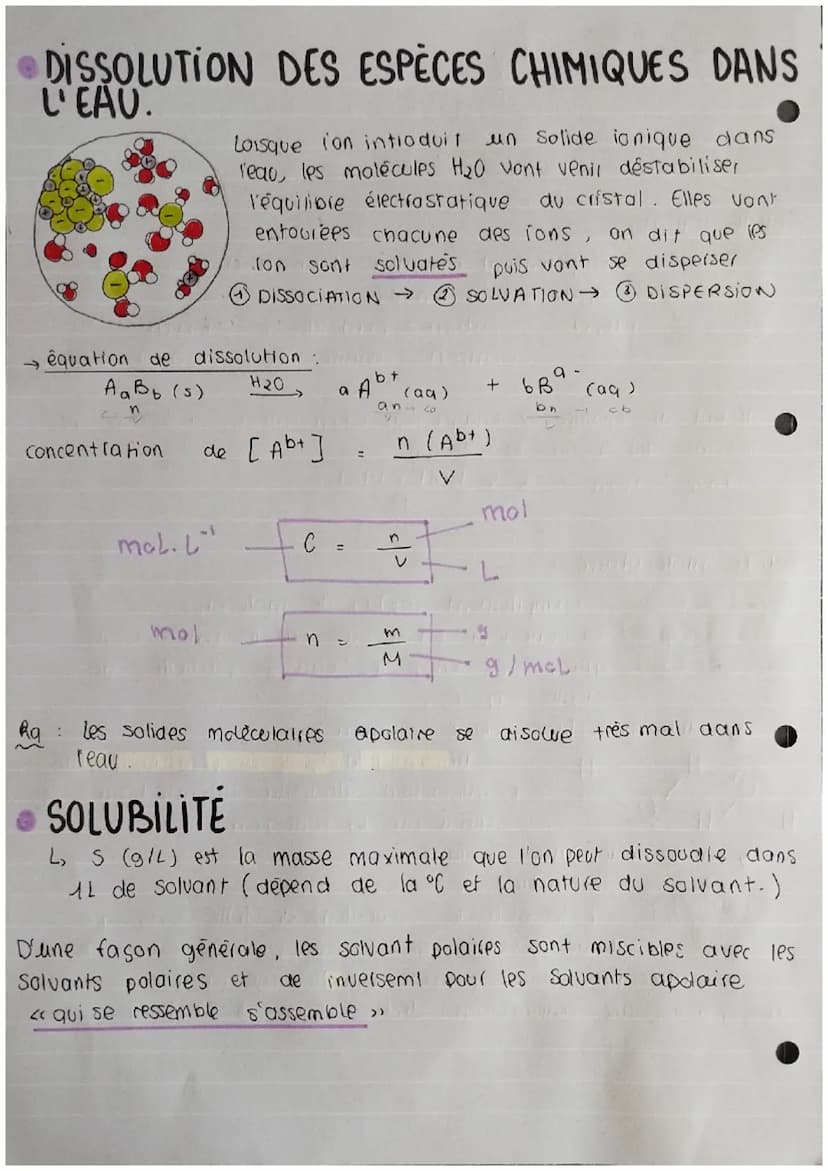 DISSOLUTION DES ESPÈCES CHIMIQUES DANS
L'EAU.
Lorsque l'on introduit un solide ionique dans
l'eau, les molécules H₂O vont venir déstabiliser
l'équilibre électrostatique du cristal. Elles vont
entourées chacune des ions, on dit que les
ion sont solvatés puis vont se disperser
① DISSOCIATION → ② SOLVATION → ③ DISPERSION
→ équation de dissolution :
AaBb (s) H₂O→ a Aᵇ⁺ (aq) + bBᵃ⁻ (aq)
n an bn
concentration de [Aᵇ⁺] = n (Aᵇ⁺) / V
mol.L⁻¹ C = n / V mol L
mol n = m / M g g/mol
Rq : les solides moléculaires apolaire se disolve très mal dans
l'eau.
SOLUBILITÉ
↳ S (g/L) est la masse maximale que l'on peut dissoudre dans
1L de solvant (dépend de la °C et la nature du solvant.)
D'une façon générale, les solvant polaires sont miscibles avec les
solvants polaires et de inversemt pour les solvants apolaire
« qui se ressemble s'assemble »